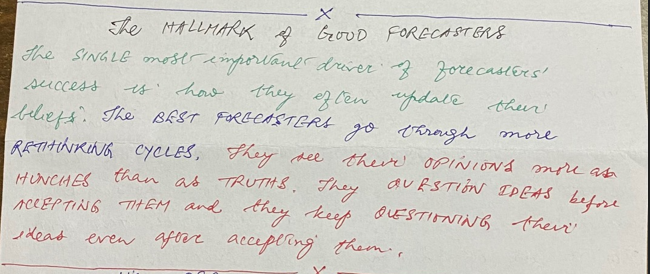 The HALLMARK of GOOD FORECASTERS
The SINGLE most important driver of forecasters'
success is how they often update their
beliefs. The BEST FORECASTERS go through more
RETHINKING CYCLES. They see their OPINIONS more as
HUNCHES than as TRUTHS. They QUESTION IDEAS before
ACCEPTING THEM and they keep QUESTIONING their
ideas even after accepting them.